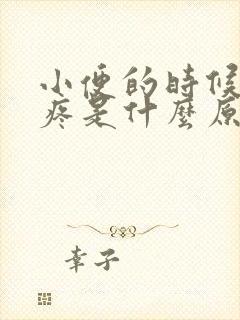 小便的時候
疼是什麼原
幸子